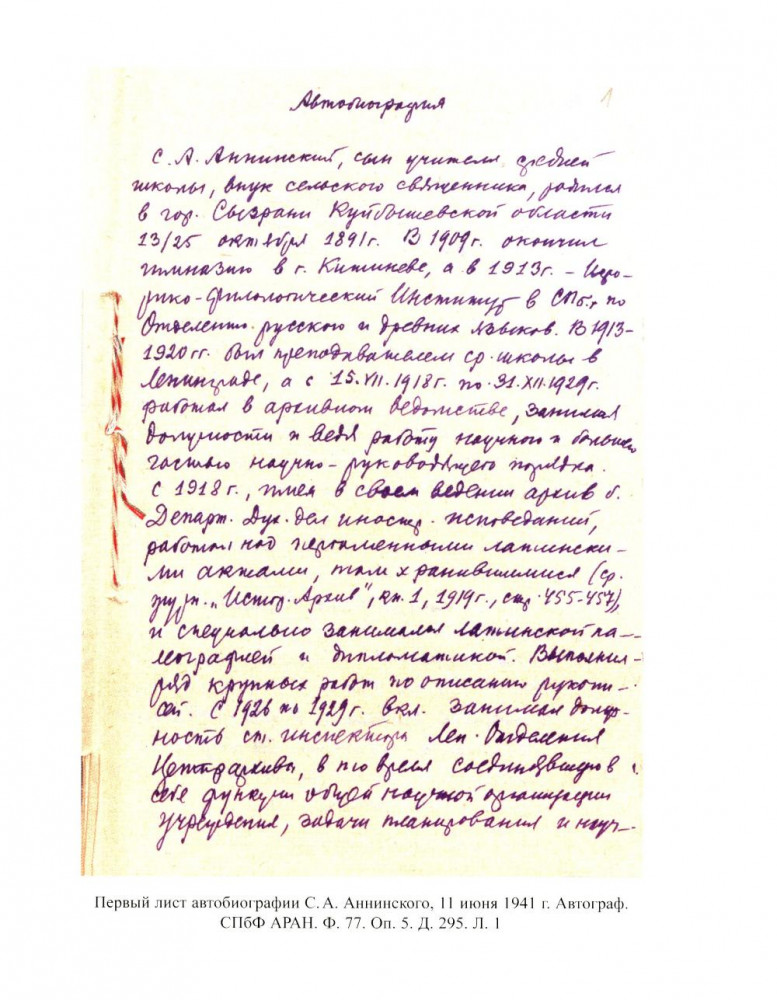 Автобиография
1
С. А. Аннинский, сын учителя средней
школы, внук сельского священника, родился
в гор. Сызрани Куйбышевской области
13/25 октября 1891 г. В 1909 г. окончил
гимназию в г. Кишиневе, а в 1913 г. – Исто-
рико-филологический Институт в СПб., по
Отделению русского и древних языков. В 1913-
1920 гг. был преподавателем ср. школы в
Ленинграде, а с 15.VII.1918 г. по 31.XII.1929 г.
работал в архивном ведомстве, занимая
должности и ведя работу научного и большею
частью научно-руководящего порядка.
С 1918 г., имея в своем ведении архив б.
Департ. Дух. дел иностр. исповеданий,
работал над пергаменными латински-
ми актами, там хранившимися (ср.
журн. „Истор. Архив", кн. 1, 1919 г., стр. 455-457),
и специально занимался латинской па-
леографией и дипломатикой. Выполнил
ряд крупных работ по описанию рукопи-
сей. С 1926 по 1929 г. вкл. занимал долж-
ность ст. инспектора Лен. Отделения
Центрархива, в то время соединявшую в
себе функции общей научной организации
учреждения, задачи планирования и науч-
Первый лист автобиографии С. А. Аннинского, 11 июня 1941 г. Автограф.
СПбФ АРАН. Ф. 77. Оп. 5. Д. 295. Л. 1